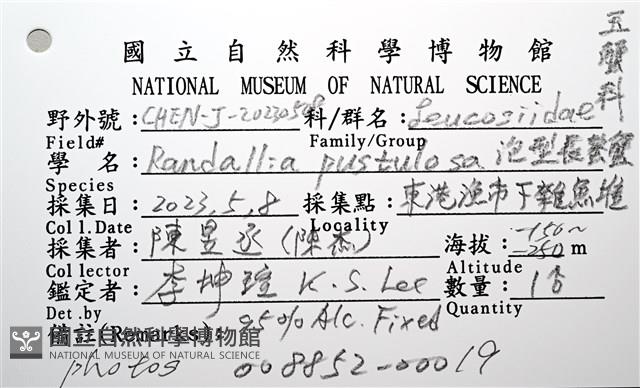 玉蟹科
國立自然科學博物館
NATIONAL MUSEUM OF NATURAL SCIENCE
野外號：CHEN-J-20230508 科/群名：Leucosiidae
Field# Family/Group
學名：Randallia pustulosa 泡型長螯蟹
Species
採集日：2023,5,8 採集點：東港漁市下雜魚堆
Coll.Date Locality
採集者：陳昱丞(陳杰) 海拔：-150~-250 m
Collector Altitude
鑑定者：李坤瑄 K.S. Lee 數量：1
Det.by Quantity
備註(Remarks)：95% Alc. Fixed
國立自然科學博物館
NATIONAL MUSEUM OF NATURAL SCIENCE
photos 008852-00019